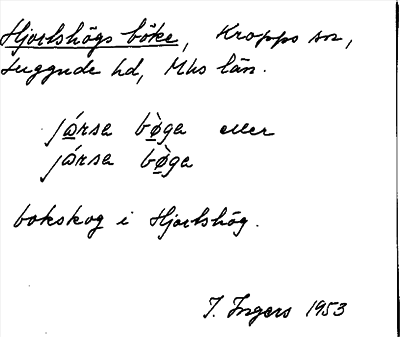 Hjortshögs böke, Kropps sn,
Luggude hd, Mhs län.
já̱rsa bø̱̀ga eller
jársa bø̱̀ga
bokskog i Hjortshög.
I. Ingers 1953